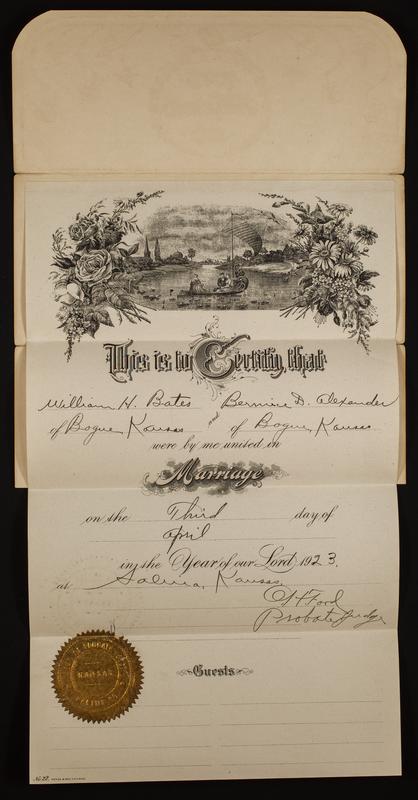 This is to Certify, that
William H. Bates and Bernice D. Alexander
of Bogue Kansas of Bogue, Kansas
were by me united in
Marriage
on the Third day of
April
in the Year of our Lord 1923.
at Salina, Kansas
Probate Judge
Guests
KANSAS
No 27.